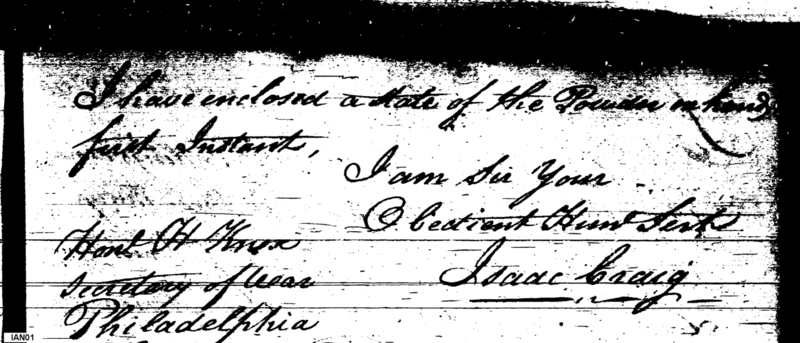 I have enclosed a state of the Powder on hand
first Instant,
I am Sir Your
Obedient Hum Servt
Isaac Craig
Honl H Knox
Secretary of War
Philadelphia
IAN01